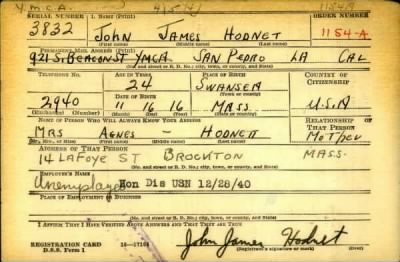 Y.M.C.A. 4/5/41 1154A
SERIAL NUMBER 1. NAME (Print) ORDER NUMBER
3832 JOHN JAMES HODNET 1154-A
(First) (Middle) (Last)
PERMANENT MAIL ADDRESS (Print)
921 S. BEACON ST YMCA SAN PEDRO LA CAL
(Number and street or R. D. No.; city, town, or county, and State)
TELEPHONE AGE IN YEARS PLACE OF BIRTH COUNTRY OF CITIZENSHIP
24 SWANSEA
DATE OF BIRTH (Town or county)
2940 11 16 16 MASS. U.S.A
(Exchange) (Number) (Mo.) (Day) (Yr.) (State or country)
NAME OF PERSON WHO WILL ALWAYS KNOW YOUR ADDRESS RELATIONSHIP OF THAT PERSON
MRS AGNES - HODNETT Mother
(Mr., Mrs., or Miss) (First) (Middle) (Last)
ADDRESS OF THAT PERSON
14 LAFOYE ST BROCKTON MASS.
(Number and street or R. D. No.; city, town, or county, and State)
EMPLOYER'S NAME
Unemployed Hon Dis USN 12/28/40
PLACE OF EMPLOYMENT OR BUSINESS
(Number and street or R. D. No.) (City, town, or county) (State)
I AFFIRM THAT I HAVE VERIFIED ABOVE ANSWERS AND THAT THEY ARE TRUE
REGISTRATION CARD
D.S.S. Form 1 16-17105 John James Hodnet
(Registrant's signature or mark)